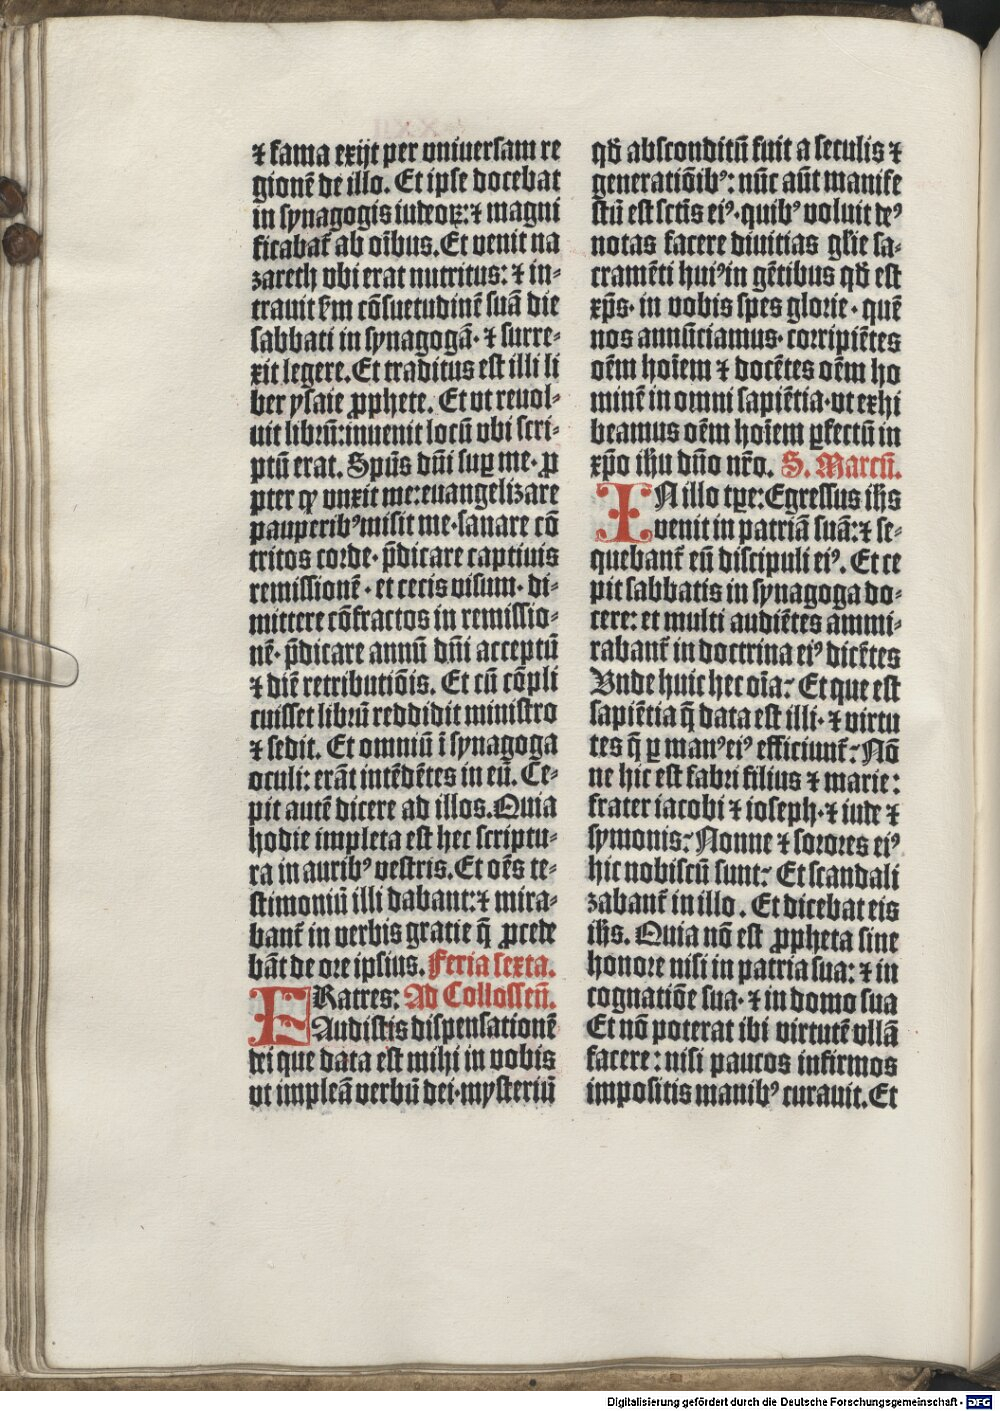 ⁊ fama exijt per vniuersam re
gionē de illo. Et ipse docebat
in synagogis iudeoꝝ: ⁊ magni
ficabat᷑ ab oībus. Et venit na
zareth vbi erat nutritus: ⁊ in-
trauit ẜm cōsuetudinē suā die
sabbati in synagogā· ⁊ surre-
xit legere. Et traditus est illi li
ber ysaie ꝓphete. Et vt reuol-
uit librū: inuenit locū vbi scri-
ptū erat. Spūs dn̄i suꝑ me· ꝓ
pter qꝫ vnxit me: euangelizare
pauperibꝰ misit me· sanare cō
tritos corde· p̄dicare captiuis
remissionē· et cecis visum· di-
mittere cōfractos in remissio-
nē· p̄dicare annū dn̄i acceptū
⁊ diē retributiōis. Et cū cōpli
cuisset librū reddidit ministro
⁊ sedit. Et omniū ī synagoga
oculi: erāt intēdētes in eū. Ce-
pit autē dicere ad illos. Quia
hodie impleta est hec scriptu-
ra in auribꝰ vestris. Et oēs te-
stimoniū illi dabant: ⁊ mira-
bant᷑ in verbis gratie q̄ ꝓcede
bāt de ore ipsius. Feria sexta.
FRatres: Ad Collossen̄.
Audistis dispensationē
dei que data est mihi in vobis
vt impleā verbū dei· mysteriū
qd̄ absconditū fuit a seculis ⁊
generatiōibꝰ: nūc aūt manife
stū est sctīs eiꝰ· quibꝰ voluit deꝰ
notas facere diuitias glīe sa-
cramēti huiꝰ in gētibus qd̄ est
xp̄s· in vobis spes glorie· quē
nos annūciamus· corripiētes
oēm hoīem ⁊ docētes oēm ho
minē in omni sapiētia· vt exhi
beamus oēm hoīem ꝑfectū in
xp̄o ihū dn̄o nr̄o. S. Marcū.
IN illo tꝑe: Egressus ih̄s
venit in patriā suā: ⁊ se-
quebant᷑ eū discipuli eiꝰ. Et ce
pit sabbatis in synagoga do-
cere: et multi audiētes ammi-
rabant᷑ in doctrina eiꝰ dicētes
Vnde huic hec oīa? Et que est
sapiētia q̄ data est illi· ⁊ virtu
tes q̄ ꝑ manꝰ eiꝰ efficiunt᷑? Nō
ne hic est fabri filius ⁊ marie:
frater iacobi ⁊ ioseph· ⁊ iude ⁊
symonis? Nonne ⁊ sorores eiꝰ
hic nobiscū sunt? Et scandali
zabant᷑ in illo. Et dicebat eis
ih̄s. Quia nō est ꝓpheta sine
honore nisi in patria sua: ⁊ in
cognatiōe sua· ⁊ in domo sua
Et nō poterat ibi virtutē vllā
facere: nisi paucos infirmos
impositis manibꝰ curauit. Et
Digitalisierung gefördert durch die Deutsche Forschungsgemeinschaft - DFG